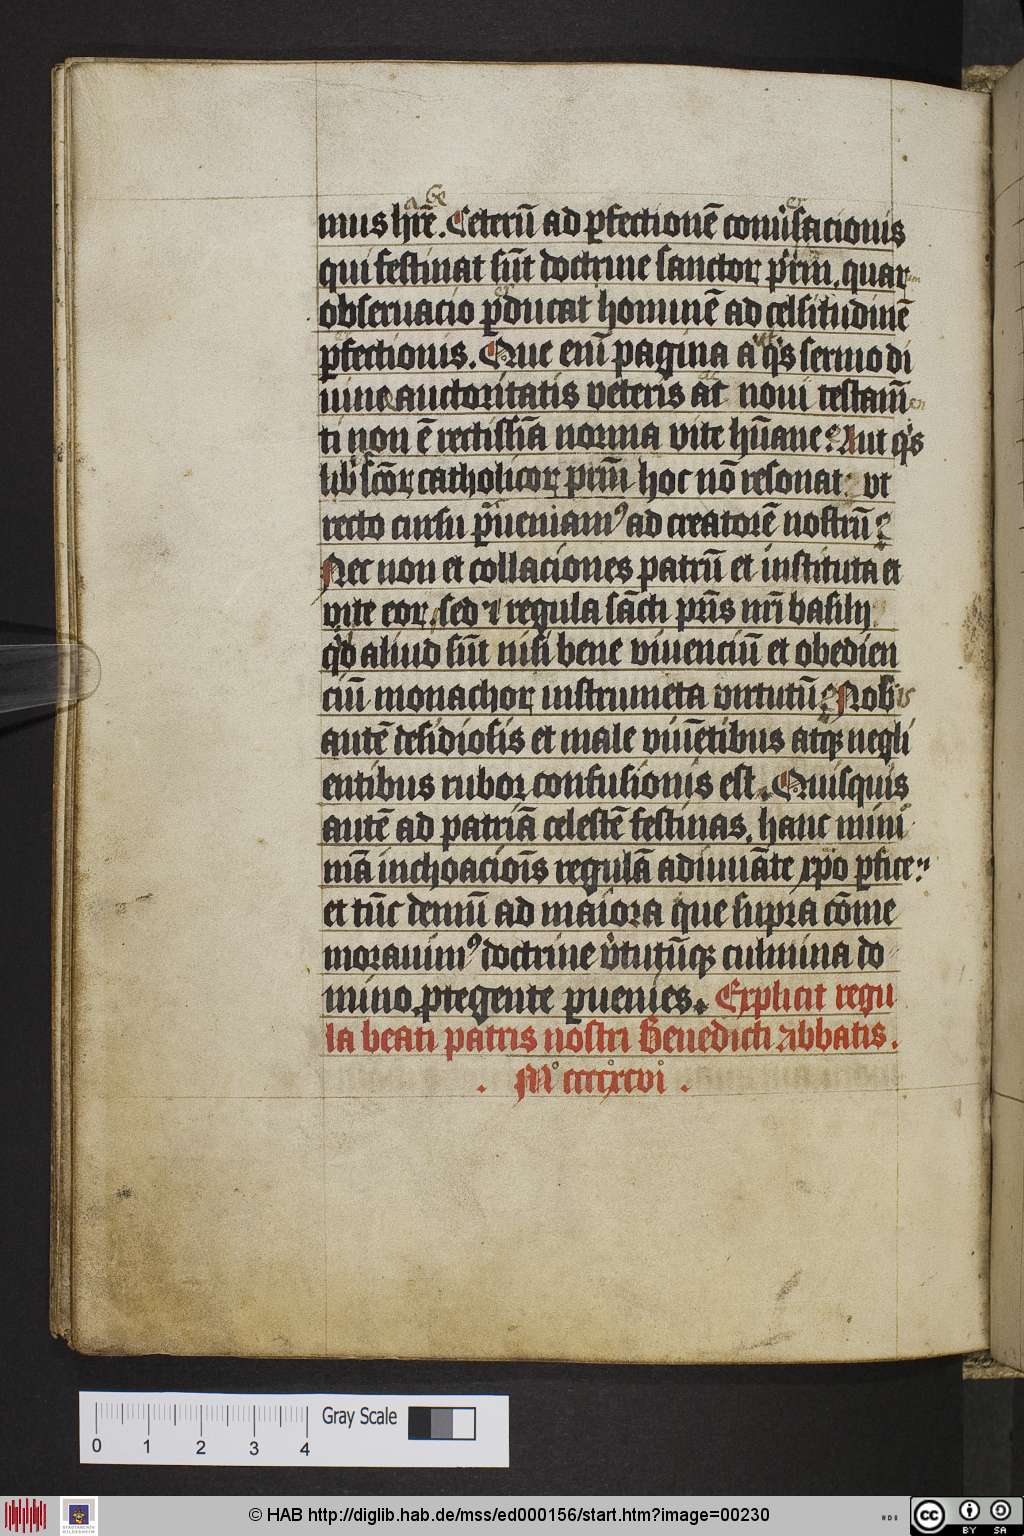 mus hr̄e. Ceterū ad ꝑfectionē conuͥsacionis
qui festinat sūt doctrine sanctoꝝ pr̄m, quaꝝ
obseruacio ꝑducat hominē ad celsitudinē
ꝑfectionis. Que enī pagina aͭ qͥs sermo di
uine auctoritatis veteris ac noui testam̄
ti non ē rectissīa norma vite hūane? Aut qͥs
lib᷒ sc̄oꝝ catholicoꝝ pr̄m hoc nō resonat vt
recto cursu ꝑueniamꝰ ad creatorē nostrū?
Nec non et collaciones patrū et instituta et
vite eoꝝ, sed ⁊ regula sācti pr̄is nr̄i basilij
qͥd aliud sūt nisi bene viuenciū et obedien
ciū monachoꝝ instrumēta virtutū? Nobis
autē desidiosis et male viuētibus atqꝫ negli
entibus rubor confusionis est. Quisquis
autē ad patriā celestē festinas, hanc mini
mā inchoacioīs regulā adiuuāte xp̄o ꝑfice
et tūc demū ad maiora que supra cōme
morauimꝰ doctrine vͥtutūqꝫ culmina do
mino ꝓtegente ꝑuenies. Explicit regu
la beati patris nostri Benedicti abbatis.
. Mͦ ccccͦxcvͦi .
0 1 2 3 4 Gray Scale
© HAB http://diglib.hab.de/mss/ed000156/start.htm?image=00230
cc BY SA